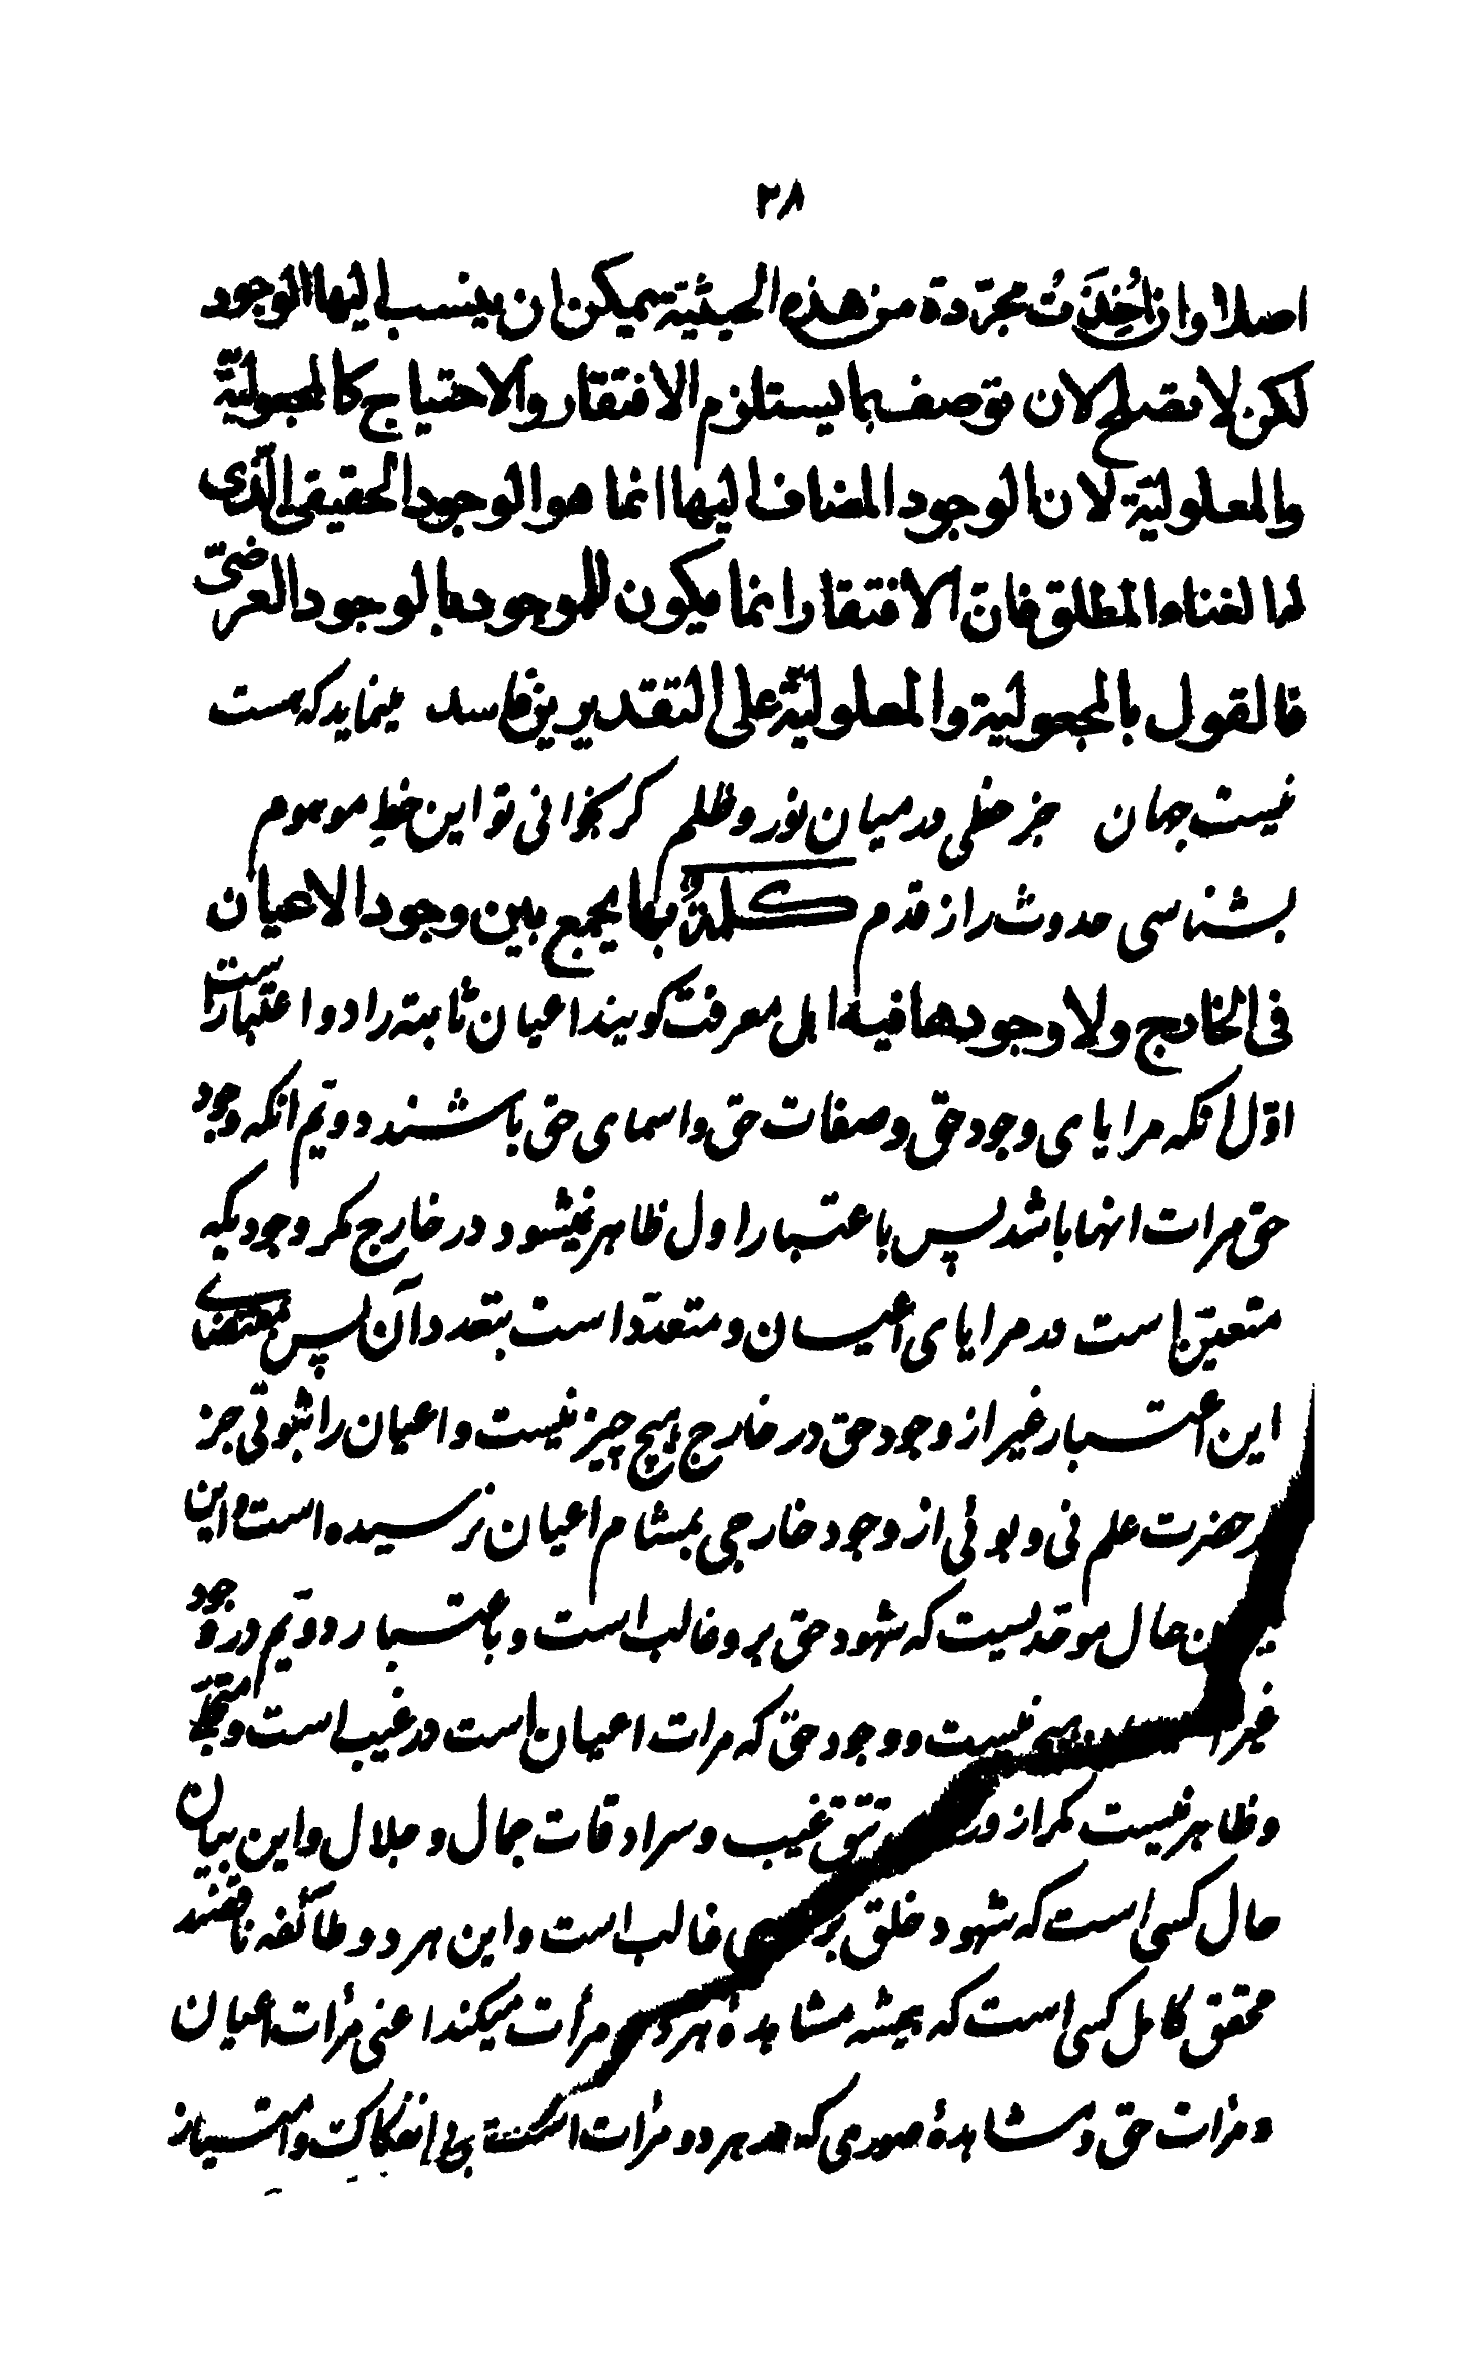 ۲۸
اصلا وان اُخِذَتْ مجرّدة من هذه الحیثیة یمکن ان ینسب الیها الوجود
لکن لا تصلح لان توصف بما یستلزم الافتقار والاحتیاج کالمجعولیّة
والمعلولیّة لان الوجود المضاف الیها انما هو الوجود الحقیقی الّذی
له الغناء المطلق فانّ الافتقار انما یکون للموجود بالوجود العرضیّ
فالقول بالمجعولیة والمعلولیّة علی التقدیرین فاسد مینماید که هست
نیست جهان جز خطی در میان نور و ظلم کر بخوانی تو این خط موهوم
بشناسی حدوث را از قدم کلمةٌ بها یجمع بین وجود الاعیان
فی الخارج ولا وجودها فیه اهل معرفت کویند اعیان ثابته را دو اعتبار است
اوّل انکه مرایای وجود حق و صفات حق و اسمای حق باشند دویّم انکه وجود
حق مرات انها باشد پس باعتبار اول ظاهر نمیشود در خارج مکر وجودیکه
متعیّن است در مرایای اعیان و متعدّد است بتعدد آن پس بمقتضای
این اعتبار غیر از وجود حق در خارج هیچ چیز نیست و اعیان را ثبوتی جز
در حضرت علم نی و بوئی از وجود خارجی بمشام اعیان نرسیده است و این
حال موحدیست که شهود حق برو غالب است و باعتبار دویّم در وجود
غیر هیچ نیست و وجود حق که مرات اعیان است در غیب است و متجلّی
و ظاهر نیست مکر از تتق غیب و سرادقات جمال و جلال و این بیان
حال کسی است که شهود خلق بر غالب است و این هر دو طائفه ناقصند
محقق کامل کسی است که همیشه مشاهدهٔ هر دو مرأت میکند اعنی مرأت اعیان
و مرأت حق و مشاهدهٔ صوری که در هر دو مرأت است بی انفکاک و امتیاز